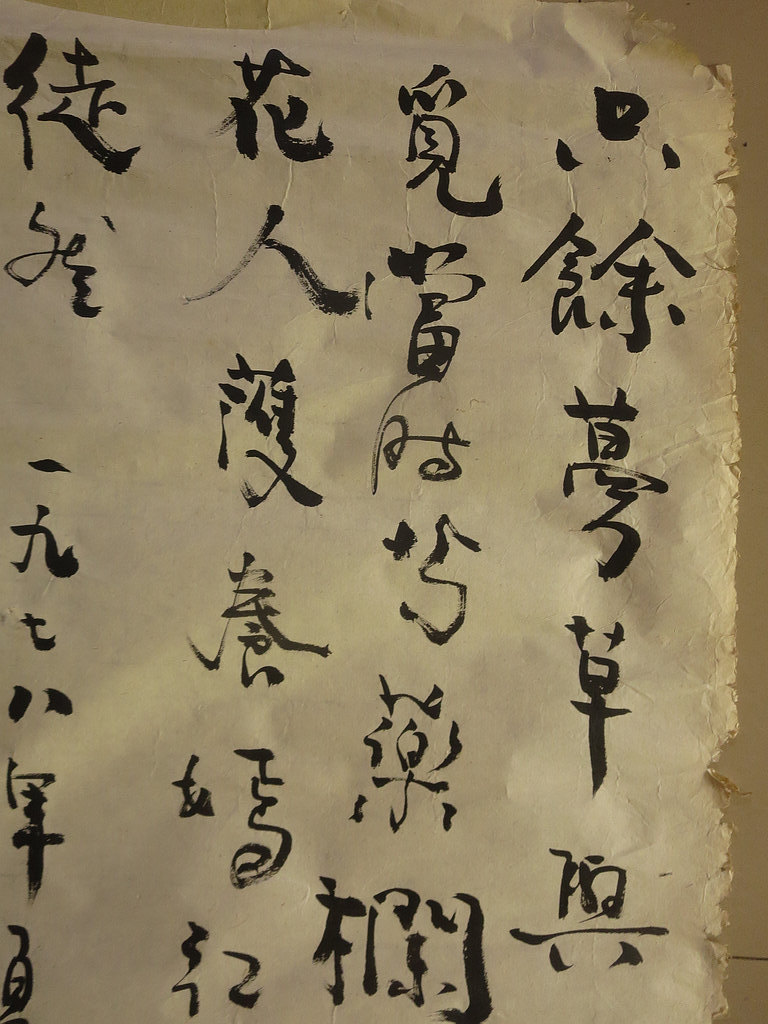 只餘蔓草與
覓當时芍藥欄
花人護養嫣红
徒然 一九七八年夏